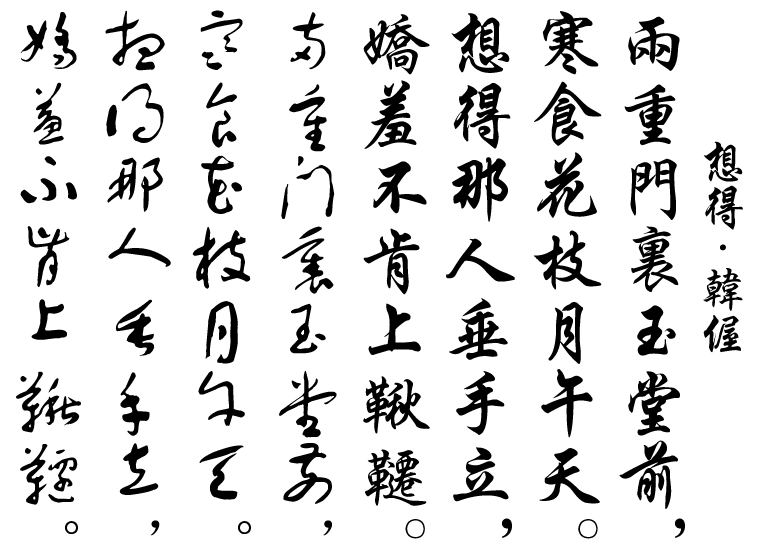 想得·韓偓
兩重門裏玉堂前，
寒食花枝月午天。
想得那人垂手立，
嬌羞不肯上鞦韆。
兩重門裏玉堂前，
寒食花枝月午天。
想得那人垂手立，
嬌羞不肯上鞦韆。